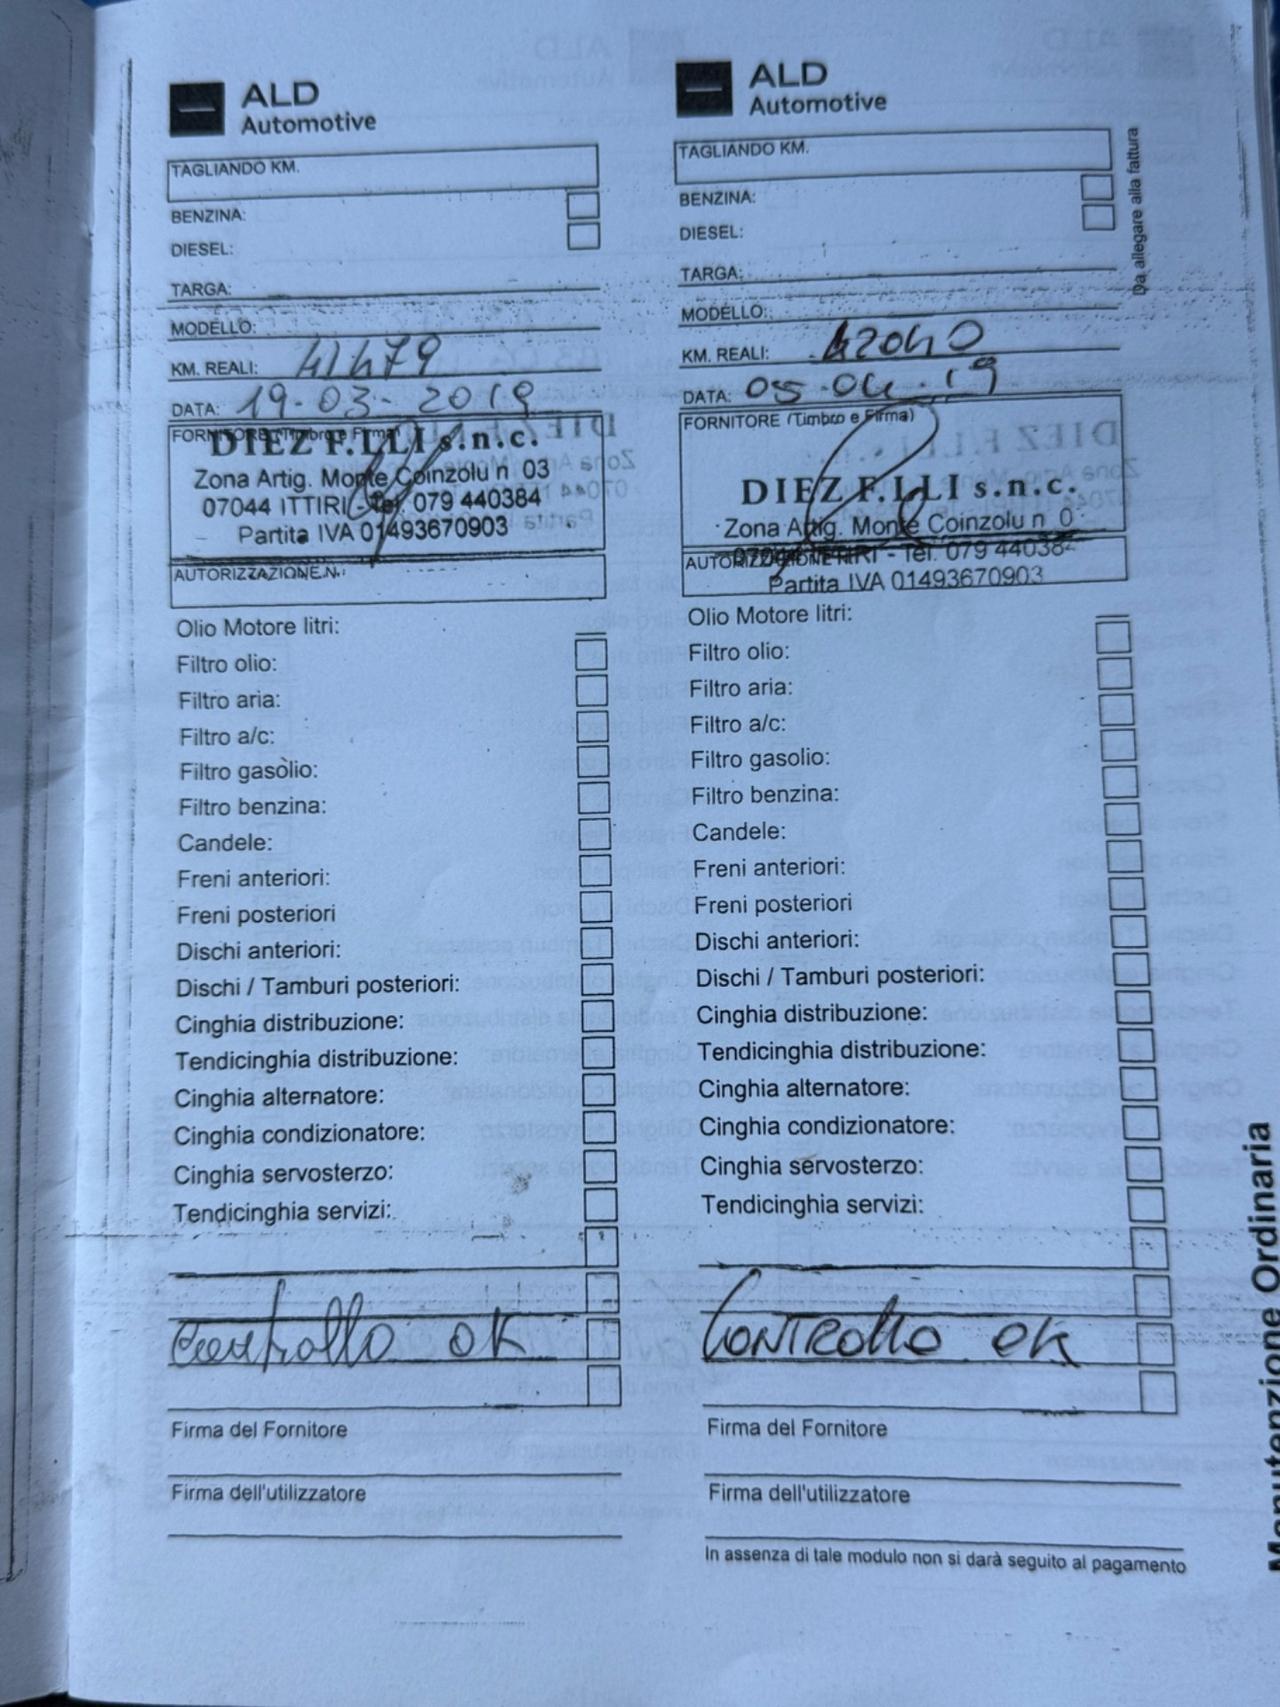 ALD
Automotive
TAGLIANDO KM.
BENZINA:
DIESEL:
TARGA:
MODELLO:
KM. REALI: 41479
DATA: 19-03-2019
FORNITORE (Timbro e Firma)
DIEZ F.LLI s.n.c.
Zona Artig. Monte Coinzolu n 03
07044 ITTIRI - Tel. 079 440384
Partita IVA 01493670903
AUTORIZZAZIONE N.:
Olio Motore litri:
Filtro olio:
Filtro aria:
Filtro a/c:
Filtro gasolio:
Filtro benzina:
Candele:
Freni anteriori:
Freni posteriori
Dischi anteriori:
Dischi / Tamburi posteriori:
Cinghia distribuzione:
Tendicinghia distribuzione:
Cinghia alternatore:
Cinghia condizionatore:
Cinghia servosterzo:
Tendicinghia servizi:
Controllo OK
Firma del Fornitore
Firma dell'utilizzatore
ALD
Automotive
TAGLIANDO KM.
BENZINA:
DIESEL:
TARGA:
MODELLO:
KM. REALI: 42040
DATA: 05-04-19
FORNITORE (Timbro e Firma)
DIEZ F.LLI s.n.c.
Zona Artig. Monte Coinzolu n 0
07044 ITTIRI - Tel. 079 440384
AUTORIZZAZIONE N.:
Partita IVA 01493670903
Olio Motore litri:
Filtro olio:
Filtro aria:
Filtro a/c:
Filtro gasolio:
Filtro benzina:
Candele:
Freni anteriori:
Freni posteriori
Dischi anteriori:
Dischi / Tamburi posteriori:
Cinghia distribuzione:
Tendicinghia distribuzione:
Cinghia alternatore:
Cinghia condizionatore:
Cinghia servosterzo:
Tendicinghia servizi:
CONTROLLO OK
Firma del Fornitore
Firma dell'utilizzatore
In assenza di tale modulo non si darà seguito al pagamento
Da allegare alla fattura
Manutenzione Ordinaria